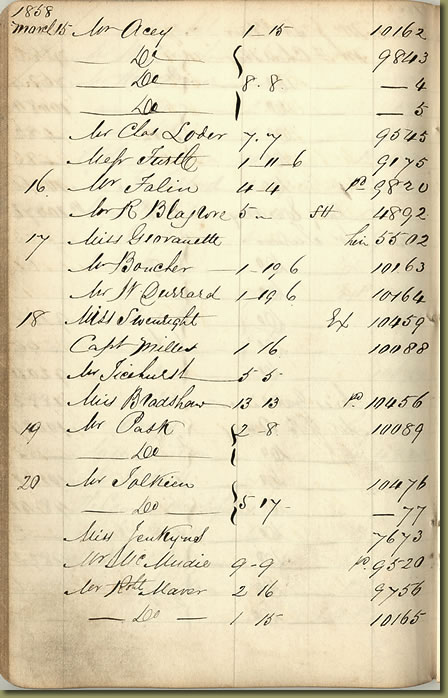 1858
March 15 Mr Acey 1-15 10162
Do 9843
Do 8.8 -4
Do -5
Mr Chas Loder 7.7 9545
Messr Turtle 1-11-6 9175
16 Mr Falin 4-4 pd 9820
Mr R Blagrove 5- SH 4892
17 Miss Giovanette 5502
Mr Boucher 1-19 6 10163
Mr W Durrard 1-19 6 10164
18 Miss Ex 10459
Capt Willes 1 16 10088
Mr Ticehurst 5 5-
Miss Bradshaw 13 13 pd 10456
19 Mr Pask 2-8 10089
Do
20 Mr Tolkien 10476
Do 5 17- -77
Miss Jenkyns 7673
Mr McMudie 9-9 pd 9520
Mr Robt Maver 2 16 9756
Do 1 15 10165